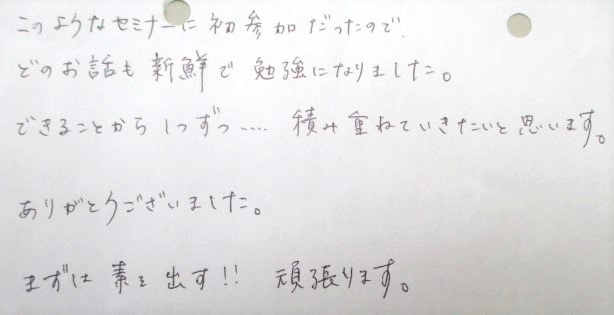 このようなセミナーに初参加だったので、
どのお話も新鮮で勉強になりました。
できることから1つずつ‥‥積み重ねていきたいと思います。
ありがとうございました。
まずは素を出す!! 頑張ります。